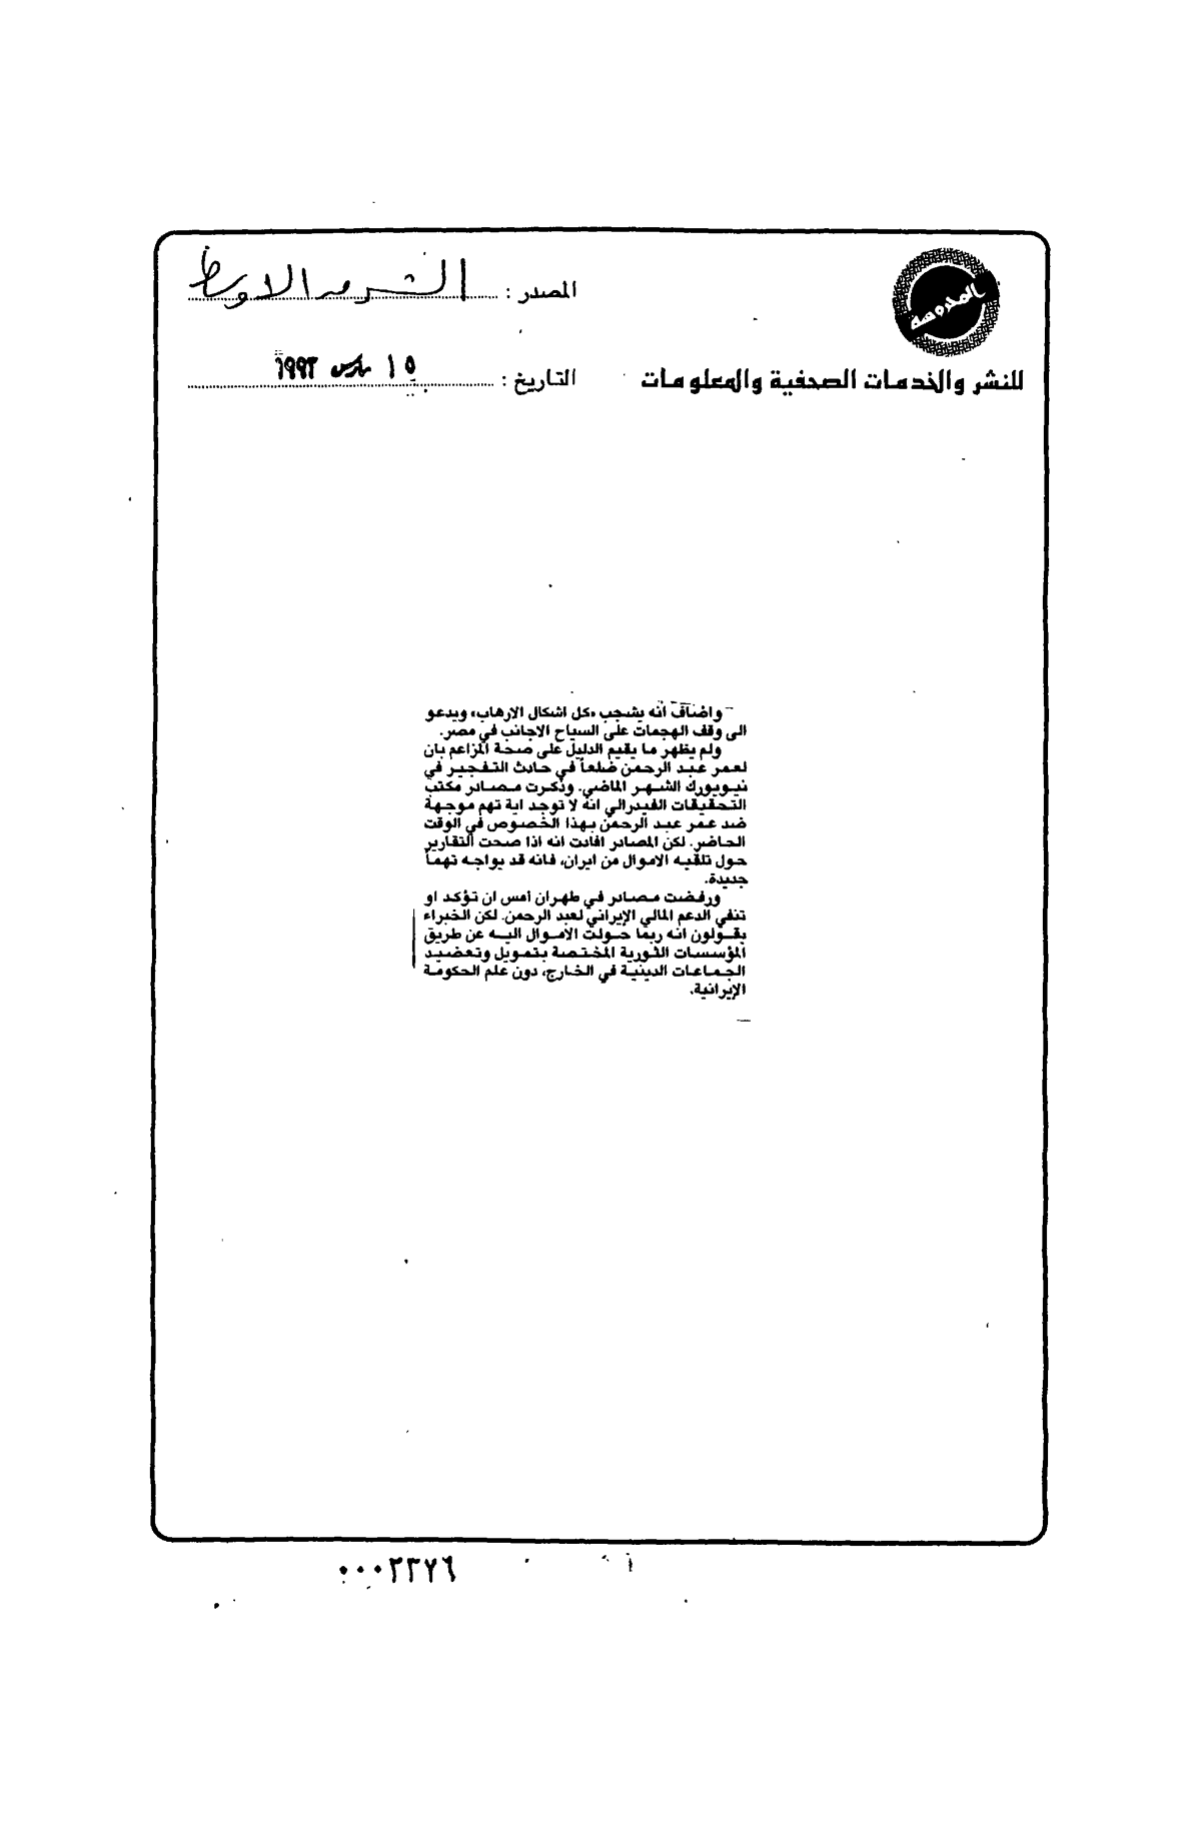 المصدر : الشرق الاوسط
المحروسة
التاريخ : ١٥ مارس ١٩٩٣
للنشر والخدمات الصحفية والمعلومات
واضاف انه يشجب «كل اشكال الارهاب» ويدعو
الى وقف الهجمات على السياح الاجانب في مصر.
ولم يظهر ما يقيم الدليل على صحة المزاعم بان
لعمر عبد الرحمن ضلعاً في حادث التفجير في
نيويورك الشهر الماضي. وذكرت مصادر مكتب
التحقيقات الفيدرالي انه لا توجد اية تهم موجهة
ضد عمر عبد الرحمن بهذا الخصوص في الوقت
الحاضر. لكن المصادر افادت انه اذا صحت التقارير
حول تلقيه الاموال من ايران، فانه قد يواجه تهماً
جديدة.
ورفضت مصادر في طهران أمس ان تؤكد او
تنفي الدعم المالي الإيراني لعبد الرحمن. لكن الخبراء
يقولون انه ربما حولت الأموال اليه عن طريق
المؤسسات الثورية المختصة بتمويل وتعضيد
الجماعات الدينية في الخارج، دون علم الحكومة
الإيرانية.
٠٠٠٢٢٧٦